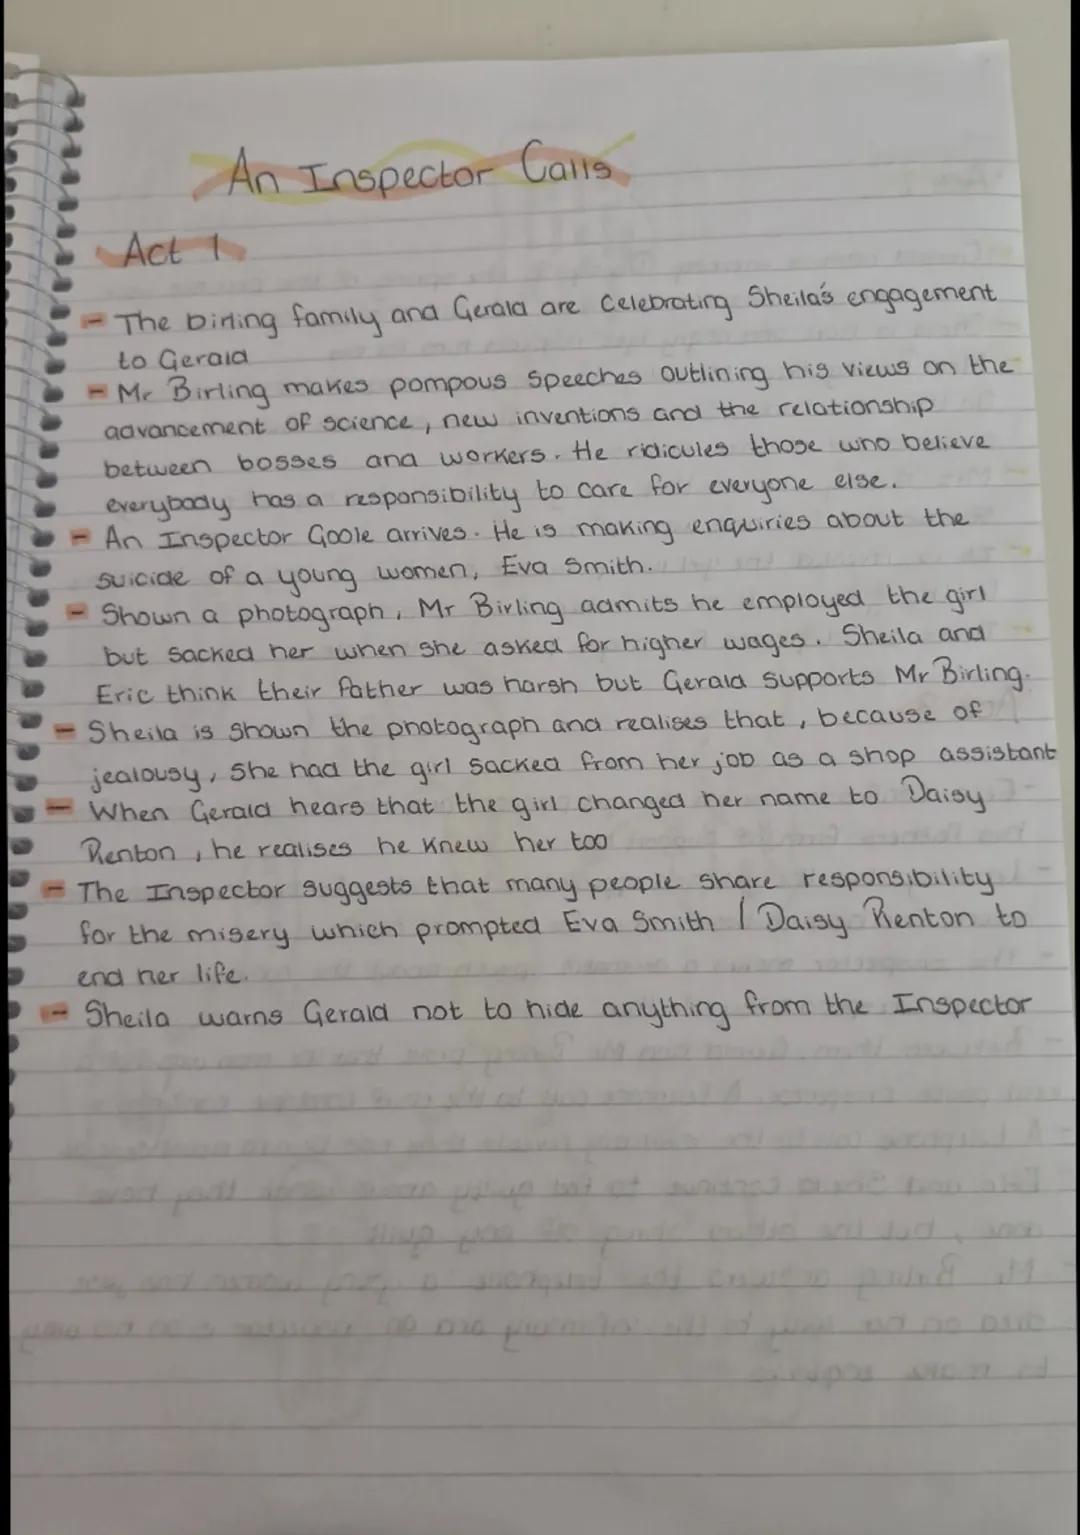 An Inspector Calls
Act 1
- The Birling family and Gerald are celebrating Sheila's engagement
to Gerald
- Mr Birling makes pompous speeches outlining his views on the
advancement of science, new inventions and the relationship
between bosses and workers. He ridicules those who believe
everybody has a responsibility to care for everyone else.
- An Inspector Goole arrives. He is making enquiries about the
suicide of a young women, Eva Smith.
- Shown a photograph, Mr Birling admits he employed the girl
but sacked her when she asked for higher wages. Sheila and
Eric think their father was harsh but Gerald supports Mr Birling.
- Sheila is shown the photograph and realises that, because of
jealousy, she had the girl sacked from her job as a shop assistant
- When Gerald hears that the girl changed her name to Daisy
Renton, he realises he knew her too
- The Inspector suggests that many people share responsibility
for the misery which prompted Eva Smith / Daisy Renton to
end her life.
- Sheila warns Gerald not to hide anything from the Inspector